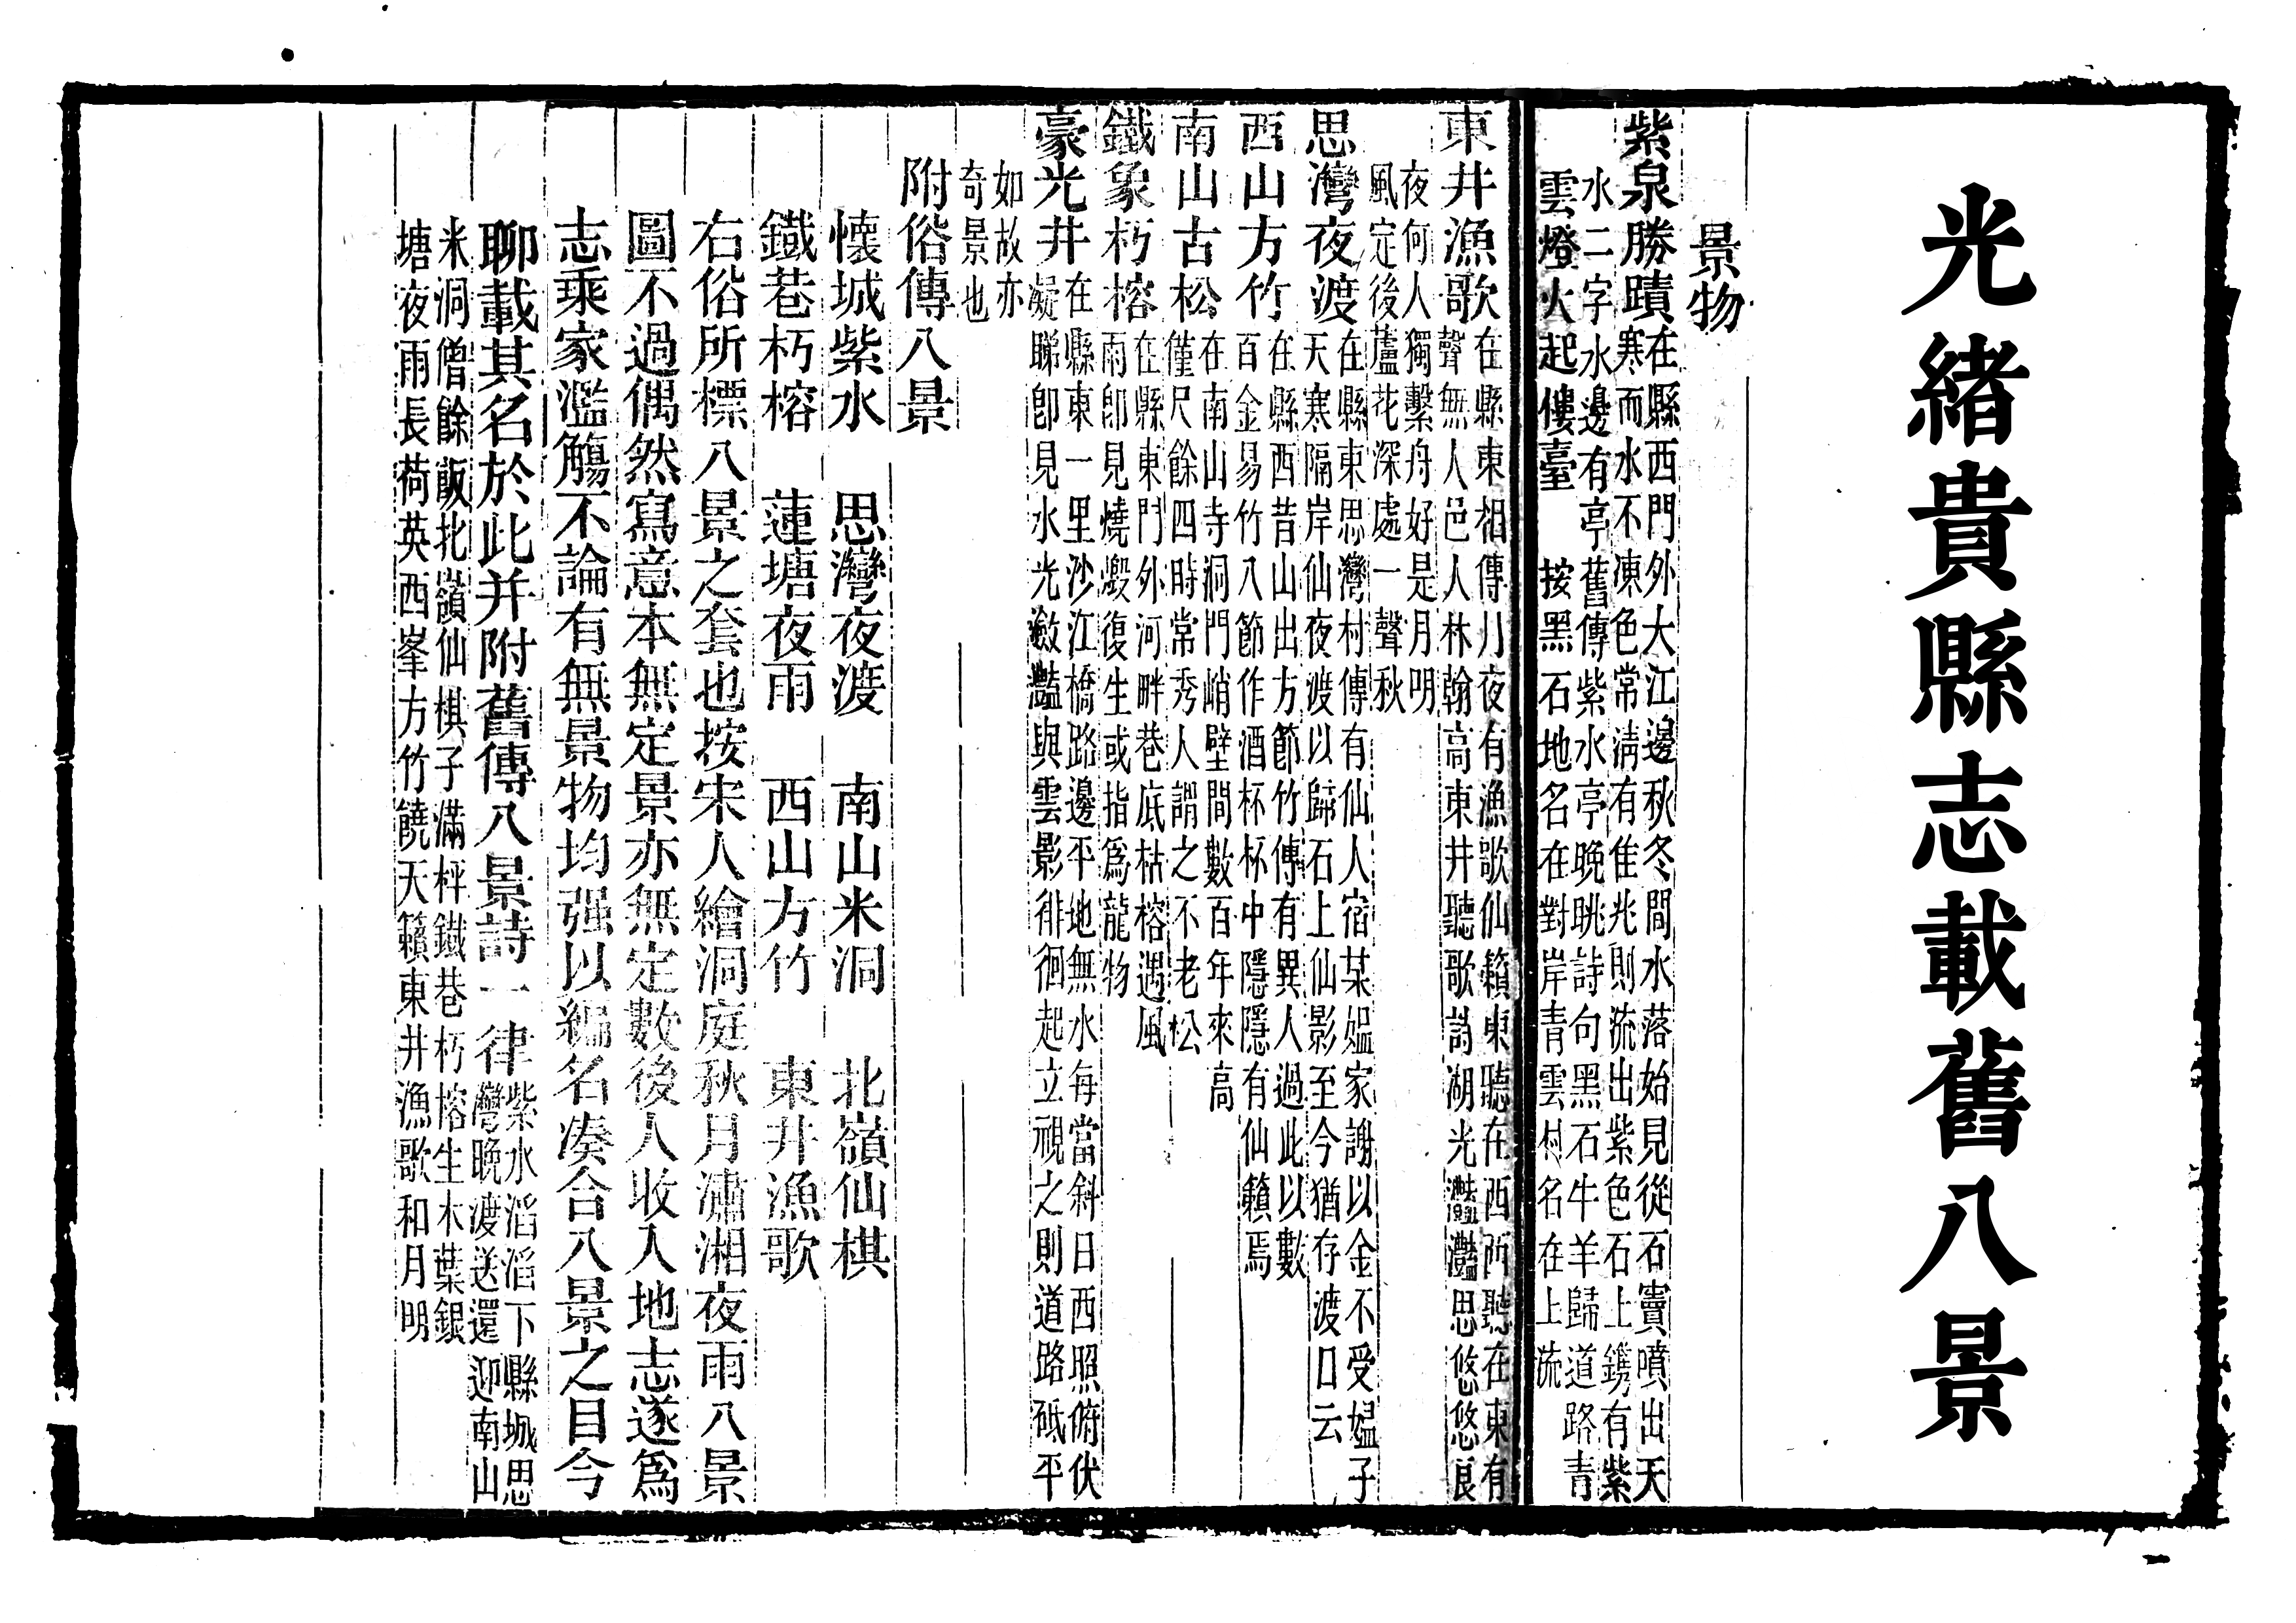 光緒貴縣志載舊八景
景物
紫泉勝蹟
在縣西門外大江邊秋冬間水落始見從石竇噴出天
寒而水不凍色常淸有佳兆則流出紫色石上鐫有紫
水二字水邊有亭舊傳紫水亭晚眺詩句黑石牛羊歸道路青
雲燈火起僂臺 按黑石地名在對岸青雲村名在上流
東井漁歌
在縣東相傳月夜有漁歌仙籟東聽在西西聽在東有
聲無人邑人林翰高東井聽歌詩湖光灩灩思悠悠良
夜何人獨繫舟好是月明
風定後蘆花深處一聲秋
思灣夜渡
在縣東思灣村傳有仙人宿某媪家謝以金不受媪子
天寒隔岸仙夜渡以歸石上仙影至今猶存渡口云
西山方竹
在縣西昔山出方節竹傳有異人過此以數
百金易竹八節作酒杯杯中隱隱有仙籟焉
南山古松
在南山寺洞門峭壁間數百年來高
僅尺餘四時常秀人謂之不老松
鐵象朽榕
在縣東門外河畔巷底枯榕遇風
雨卽見燒燬復生或指爲龍物
豪光井
在縣東一里沙江橋路邊平地無水每當斜日西照俯伏
凝睇卽見水光瀲灩與雲影徘徊起立視之則道路砥平
如故亦
奇景也
附俗傳八景
懷城紫水 思灣夜渡 南山米洞 北嶺仙棋
鐵巷朽榕 蓮塘夜雨 西山方竹 東井漁歌
右俗所標八景之套也按宋人繪洞庭秋月瀟湘夜雨八景
圖不過偶然寫意本無定景亦無定數後人收入地志遂爲
志乘家濫觴不論有無景物均强以編名凑合八景之目今
聊載其名於此并附舊傳八景詩一律
紫水滔滔下縣城思
灣晚渡送還迎南山
米洞僧餘飯北嶺仙棋子滿枰鐵巷朽榕生木葉銀
塘夜雨長荷英西峯方竹饒天籟東井漁歌和月明